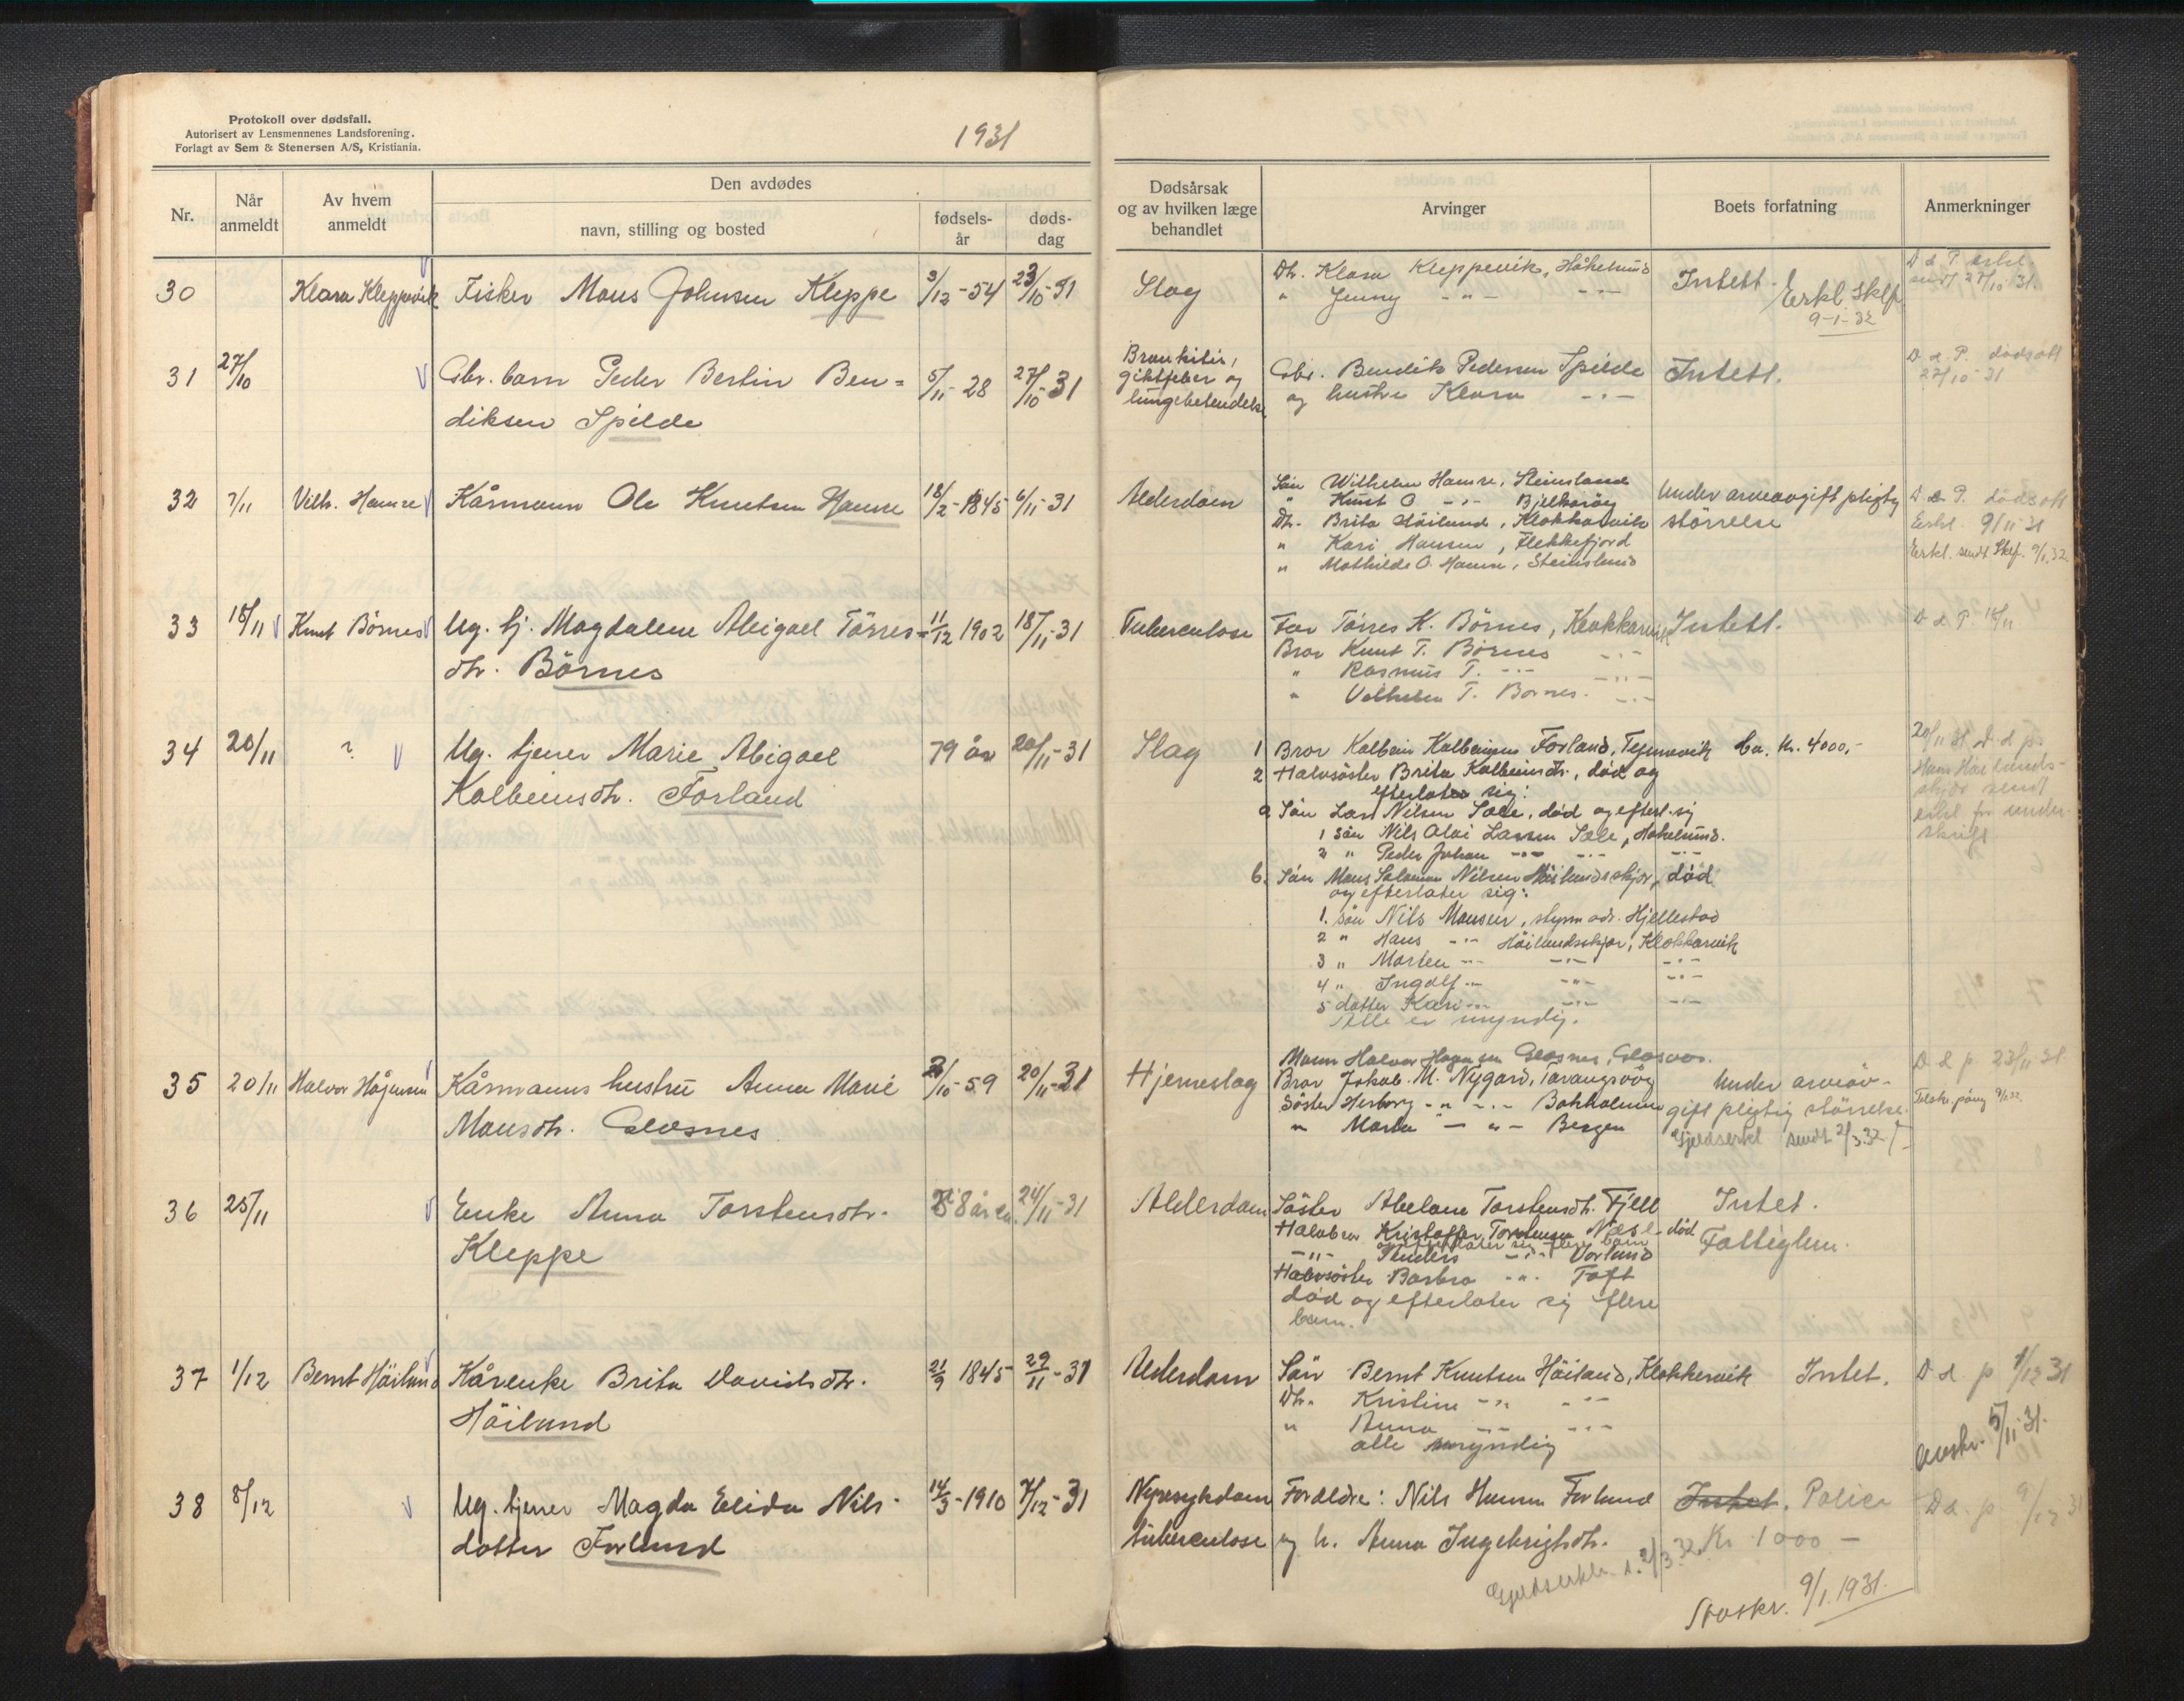 Protokoll over dødsfall.
Autorisert av Lensmennenes Landsforening.
Forlagt av Sem & Stenersen A/S, Kristiania.
1931
Nr.
Når anmeldt
Av hvem anmeldt
Den avdødes
navn, stilling og bosted
fødselsår
dødsdag
Dødsårsak og av hvilken læge behandlet
Arvinger
Boets forfatning
Anmerkninger
30 Klara Kleppevik Fisker Mons Johnsen Kleppe 3/12-54 23/10-31 Slag
Dtr. Klara Kleppevik, Håkelund
" Jenny -"- -"-
Intett. Erkl. Skfr
9-1-32
D d P. erkl.
sendt 27/10 31.
31 27/10 Gbr. barn Peder Bertin Ben=
diksen Spilde
5/11-28 27/10-31
Bronkitis,
giktfeber og
lungebetendelse
Gbr. Bendik Pedersen Spilde
og hustru Klara -"-
Intett.
D d P. dødsatt
27/10 31
32 7/11 Vilh. Hamre Kårmann Ole Knutsen Hamre 18/2-1845 6/11-31 Alderdom
Sön Wilhelm Hamre, Steinsland
" Knut O -"- Bjelkarøy
Dtr. Brita Höiland, Klokkarvik
" Kari Hansen, Flekkefjord
" Mathilde O. Hamre, Steinsland
Under arveavgift pligtig
störrelse
D d P. dødsatt
Erkl. 9/11 31
Erkl. sendt Skf. 9/1.32.
33 18/11 Knut Börnes Ug. tj. Magdalene Abigael Törres=
dtr. Börnes
11/12 1902 18/11-31 Tuberculose
Far Törres K. Börnes, Klokkarvik
Bror Knut T. Börnes -"-
" Rasmus T. -"- -"-
" Vilhelm T. Börnes. -"-
Intett.
D d P 18/11
34 20/11 ? Ug. tjener Marie Abigael
Kolbeinsdtr. Forland
79 år 20/11-31 Slag
1 Bror Kolbein Kolbeinsen Forland, Tyssøvik
2 Halvsöster Brita Kolbeinsdtr., död og
efterlater sig:
a Sön Lars Nilsen Sæle, död og efterl. sig
1 sön Nils Olai Larsen Sæle, Håkelund.
2 " Peder Johan -"- -"- -"-
b. Sön Mons Salomon Nilsen Höilundsskjær, död
og efterlater sig:
1. sön Nils Monsen, styrm. adr. Hjellestad
2 " Hans -"- Höilundsskjær, Klokkarvik
3 " Morten -"- -"- -"-
4 " Ingolf -"- -"- -"-
5 datter Kari -"- -"- -"-
Alle er myndig.
Ca. kr. 4000,-
20/11 31 D. d p.
Hans Höilunds-
skjær sendt
erkl. for under-
skrift
35 20/11 Halvor Hågensen Kårmanns hustru Anna Marie
Monsdtr. Glæsnes
/10-59 20/11-31 Hjerneslag
Mann Halvor Hågensen Glæsnes, Glesvær.
Bror Jakob M. Nygård, Tarangsvåg
Söster Herborg -"- -"- Bakholmen
" Marta -"- Bergen
Under arveav-
gift pligtig störrelse.
Gjeldserkl sendt 2/3.32
D d p 23/11 31.
36 25/11 Enke Anna Torstensdtr.
Kleppe
88 år ca. 24/11-31 Alderdom
Söster Abelone Torstensdtr. Fjell
Halvbror Kristoffer Torstensen Næsl. död
og efterlater sig flere barn
-"- Anders -"- Vorland
Halvsöster Barbra -"- Toft
död og efterlater sig flere
barn.
Intet.
Fattiglem.
37 1/12 Bernt Höiland Kårenke Brita Davidsdtr.
Höiland
21/9 1845 29/11-31 Alderdom
Sön Bernt Knutsen Höiland, Klokkervik
Dtr. Kristine -"- -"-
" Anna -"- -"-
alle myndig
Intet.
D d. p 1/12 31
Avskr. 5/11-31.
38 8/12 Ug. tjener Magda Elida Nils-
datter Forland
14/3-1910 7/12-31
Nyresykdom
tuberculose
Foreldre: Nils Hansen Forland
og h. Anna Ingebrigtsdtr.
Intet. Police
Kr 1000-
Gjeldserklr. s. 2/3.32.
D d. p 9/12 31
Avskr. 9/1.1931.